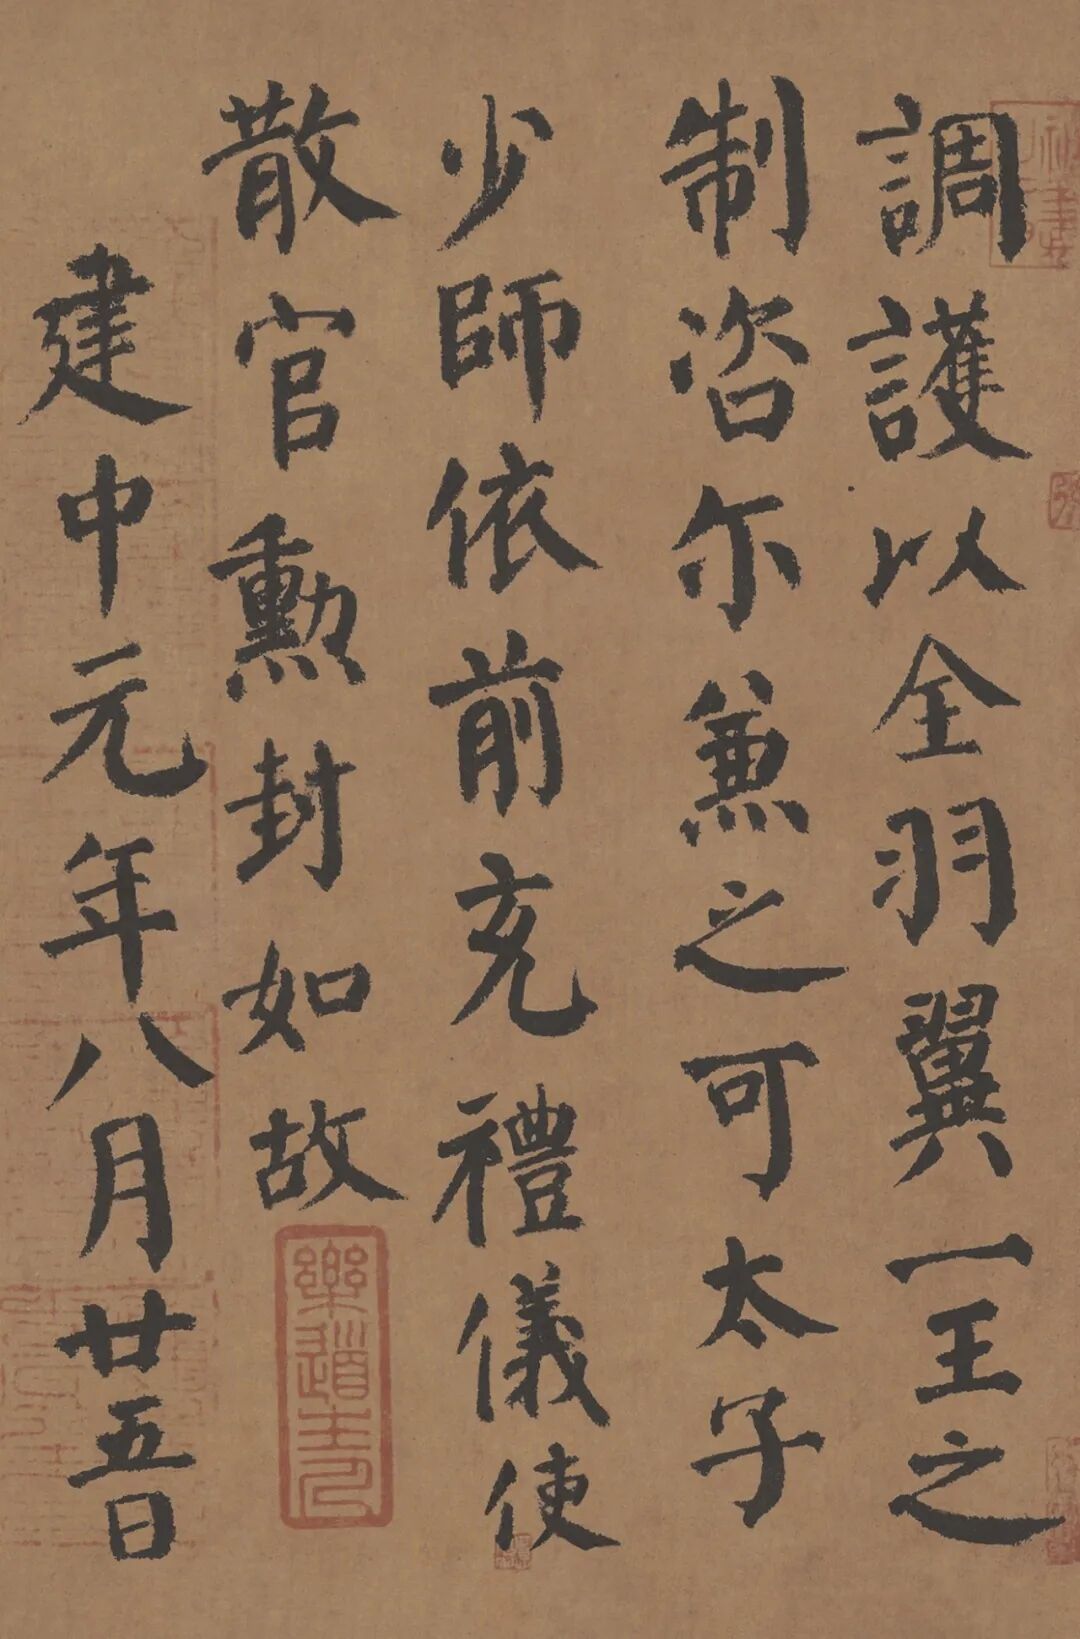 調護以全羽翼一王之
制咨尔兼之可太子
少師依前充禮儀使
散官勲封如故
建中元年八月廿五日